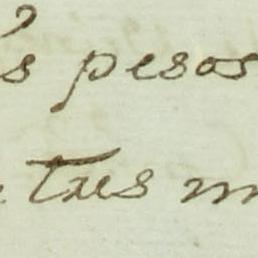 s pesos
tres m